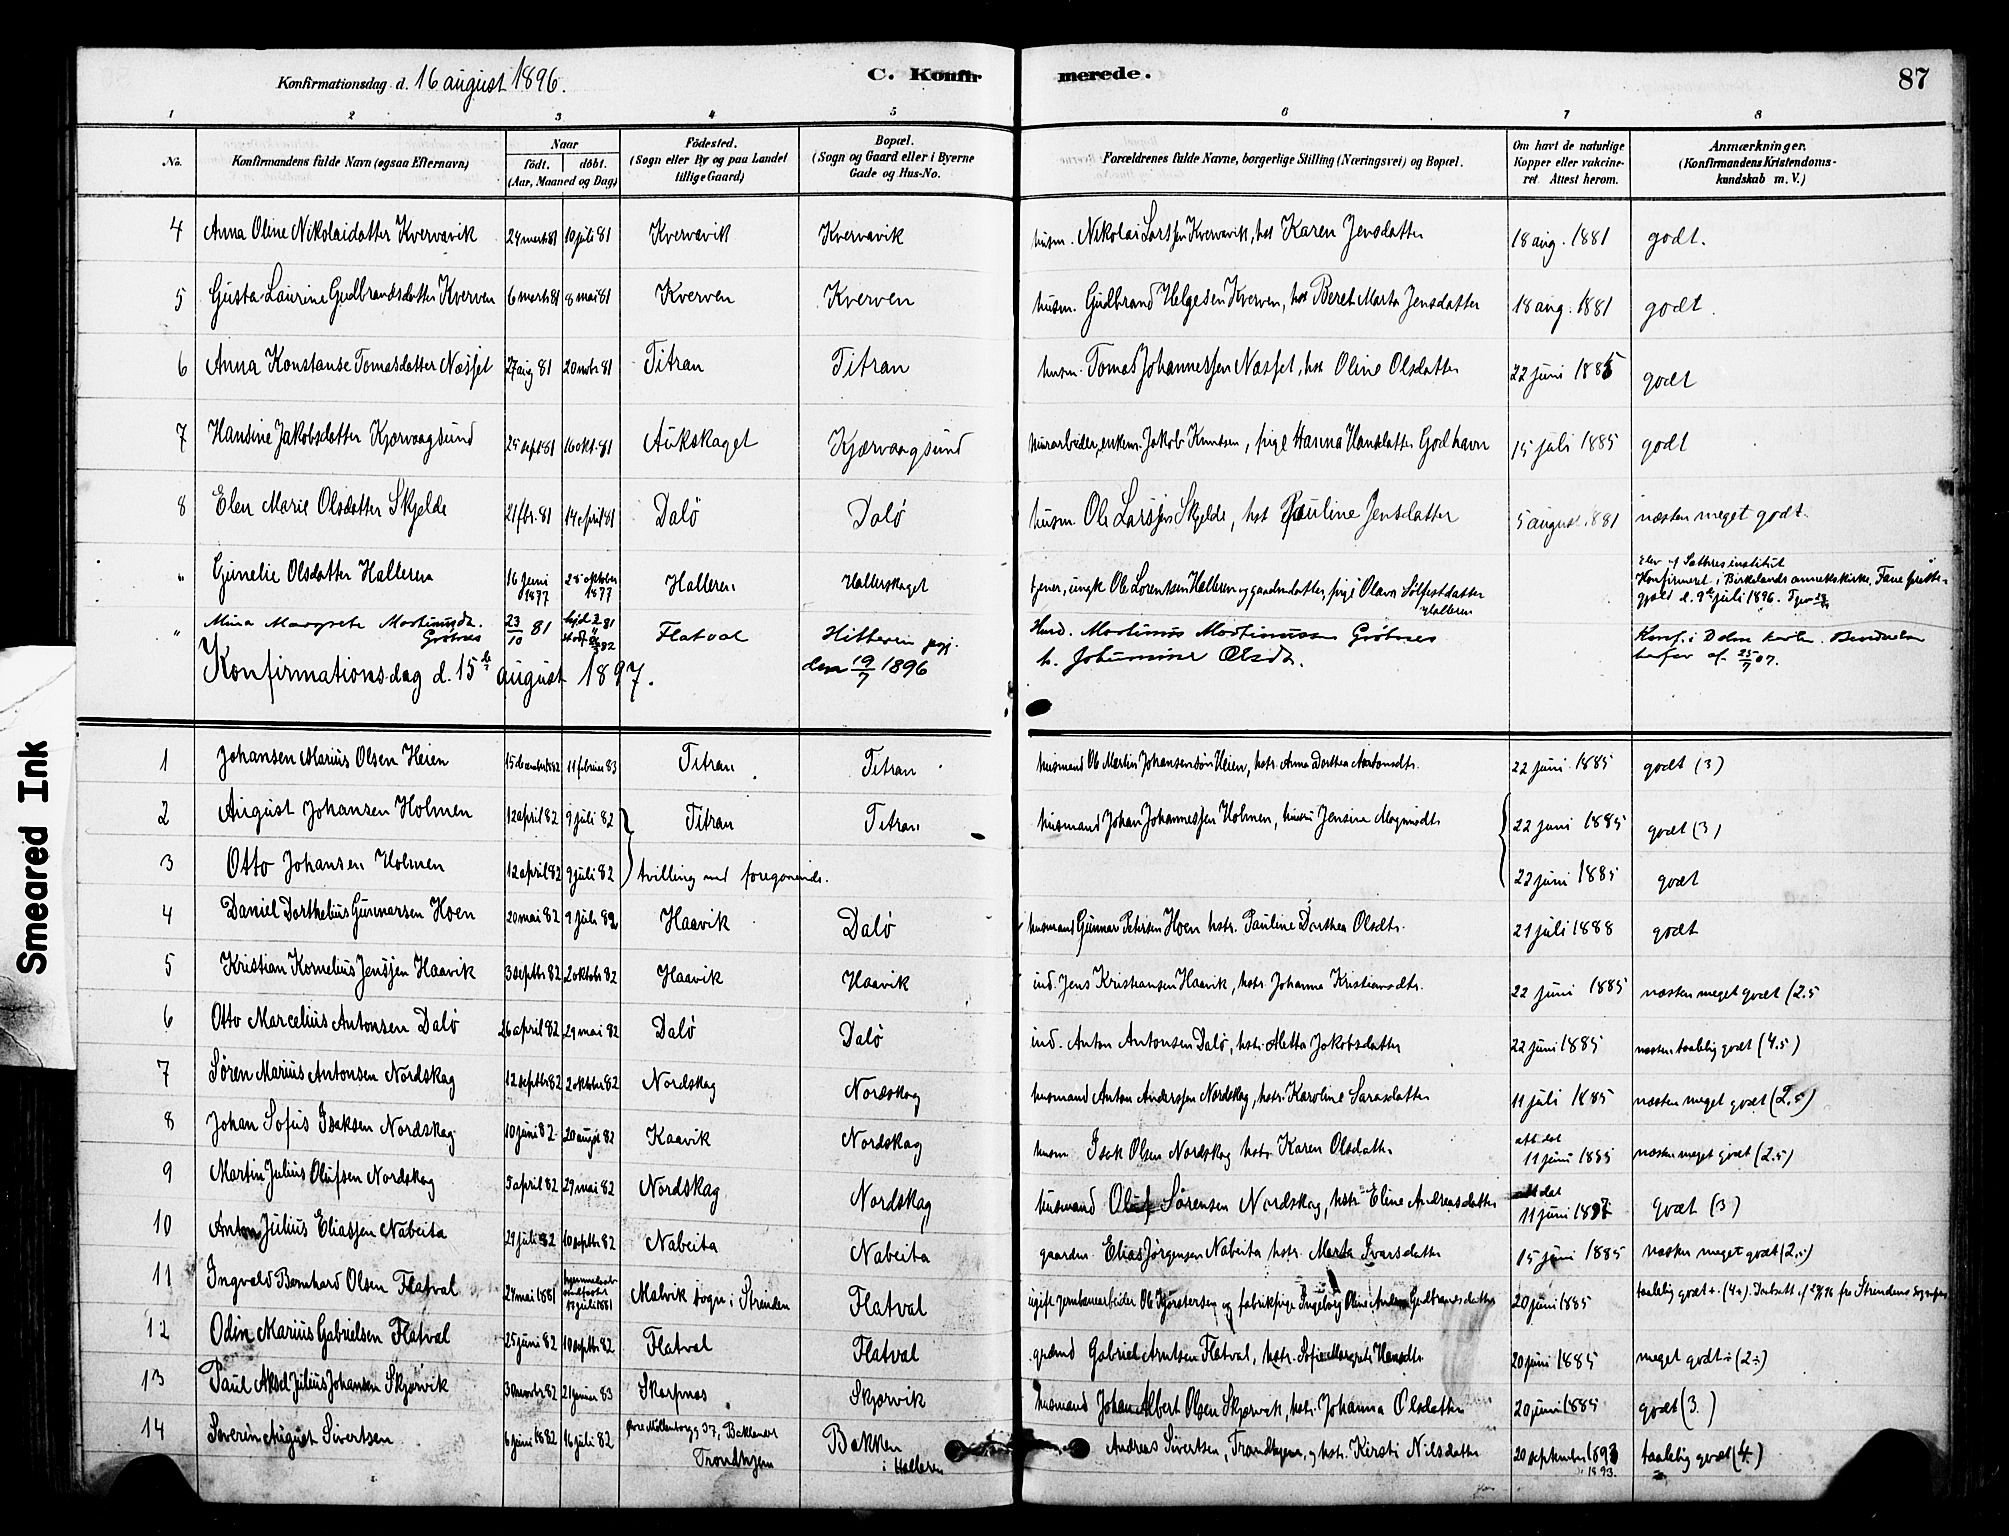 Konfirmationsdag d. 16 august 1896.
C. Konfir merede.
87
1 2 3 4 5 6 7 8
No.
Konfirmandens fulde Navn (ogsaa Efternavn)
Naar
født. døbt.
(Aar, Maaned og Dag)
Fødested.
(Sogn eller By og paa Landet
tillige Gaard)
Bopæl.
(Sogn og Gaard eller i Byerne
Gade og Hus-No.
Forældrenes fulde Navne, borgerlige Stilling (Næringsvei) og Bopæl.
Om havt de naturlige
Kopper eller vakcine-
ret. Attest herom.
Anmærkninger.
(Konfirmandens Kristendoms-
kundskab m. V.)
4 Anna Oline Nikolaidatter Kvervavik 24 marts 81 10 juli 81 Kvervavik Kvervavik husm. Nikolai Larssen Kvervavik, hst Karen Jensdatter 18 aug. 1881 godt.
5 Gusta Laurine Gudbrandsdatter Kverven 6 marts 81 8 mai 81 Kverven Kverven husm. Gudbrand Helgesen Kverven, hst Beret Marta Jensdatter 18 aug. 1881 godt.
6 Anna Konstanse Tomasdatter Næsset 27 aug 81 20 novbr 81 Titran Titran husm. Tomas Johannessen Næsset, hst Oline Olsdatter 22 juni 1885 godt
7 Hansine Jakobsdatter Kjærvaagsund 25 sept 81 16 okt. 81 Aukskaget Kjærvaagsund Jakob Knutsen, pige Hanna Hansdatter Godhavn 15 juli 1885 godt
8 Elen Marie Olsdatter Skjelde 21 fbr. 81 14 april 81 Dalö Dalö husm. Ole Larssen Skjelde, hst Pauline Jensdatter 5 august 1881 næsten meget godt.
" Gunelie Olsdatter Halleren 16 juni 1877 28 oktober 1877 Halleren Hallerskaget Ole Lorentsen Halleren og gaardm.datter, pige Olava Sölfestdatter Halleren
Elev af institut
Konfirmeret i Birkelands annekskirke, Fane præste-
gjeld d. 9de juli 1896.
" Mina Margrete Martinusdt. Grötnes 23/10 81 Flatval Hitteren pgj. Martinus Martinussen Grötnes
Konfirmationsdag d. 15de august 1897. den 19/7 1896 h. Johannne Olsdt. 25/7 07.
1 Johansen Marius Olsen Heien 15 december 82 11 februar 83 Titran Titran husmand Ole Martin Johansensön Heien, hstr. Anna Dorthea Antonsdtr. 22 juni 1885 godt (3)
2 August Johansen Holmen 12 april 82 9 juli 82 Titran Titran husmand Johan Johannessen Holmen, hustru Jensine Mogensdtr. 22 juni 1885 godt (3)
3 Otto Johansen Holmen 12 april 82 9 juli 82 tvilling med foregaaende. 22 juni 1885 godt
4 Daniel Dorthelius Gunnarsen Hoen 20 mai 82 9 juli 82 Haavik Dalö husmand Gunnar Petersen Hoen hstr. Pauline Dorthea Olsdtr. 21 juli 1888 godt
5 Kristian Kornelius Jenssen Haavik 3 septbr 82 2 oktobr 82 Haavik Haavik ind. Jens Kristiansen Haavik, hstr. Johanna Kristiansdtr. 22 juni 1885 næsten meget godt (2.5
6 Otto Marcelius Antonsen Dalö 26 april 82 29 mai 82 Dalö Dalö ind. Anton Antonsen Dalö, hstr. Aletta Jakobsdatter 22 juni 1885 næsten taalelig godt (4.5)
7 Sören Marius Antonsen Nordskag 12 septbr 82 2 oktober 82 Nordskag Nordskag husmand Anton Anderssen Nordskag, hstr. Karoline Sarasdatter 11 juli 1885 næsten meget godt (2.5)
8 Johan Sofus Isaksen Nordskag 10 juni 82 20 august 82 Kaavik Nordskag husm Isak Olsen Nordskag hstr Karen Olsdatter att dat 11 juni 1885 næsten meget godt (2.5)
9 Martin Julius Olufsen Nordskag 5 april 82 29 mai 82 Nordskag Nordskag husmand Oluf Sörensen Nordskag, hstr Eline Andreasdatter att dat 11 juni 1897 godt (3)
10 Anton Julius Eliassen Nabeita 29 juli 82 10 septbr 82 Nabeita Nabeita gaardm. Elias Jörgensen Nabeita hstr. Marta Ivarsdatter 15 juni 1885 næsten meget godt (2.5)
11 Ingvald Bernhard Olsen Flatval 24 mai 1881 Malvik sogn i Strinden Flatval og fabrikpige Ingeborg Oline Gudbrandsdatter 20 juni 1885
12 Odin Marius Gabrielsen Flatval 25 juni 82 10 septbr 82 Flatval Flatval Gabriel Arntsen Flatval, hstr. Sofie Margrete Hansdtr. 20 juni 1885 meget godt ÷ (2÷)
13 Paul Aksel Julius Johansen Skjærvik 30 novbr 82 21 januar 83 Skarpnes Skjærvik husmand Johan Albert Olsen Skjærvik, hstr. Johanna Olsdatter 20 juni 1885 godt (3.)
14 Severin August Sivertsen 6 juni 1882 16 juli 82 Möllenberg 37, Baklandet Trondhjem Bakken i Halleren Andreas Sivertsen, Trondhjem, og hstr. Kirsti Nilsdatter 20 september 1893 1893. taalelig godt (4.)
Smeared Ink